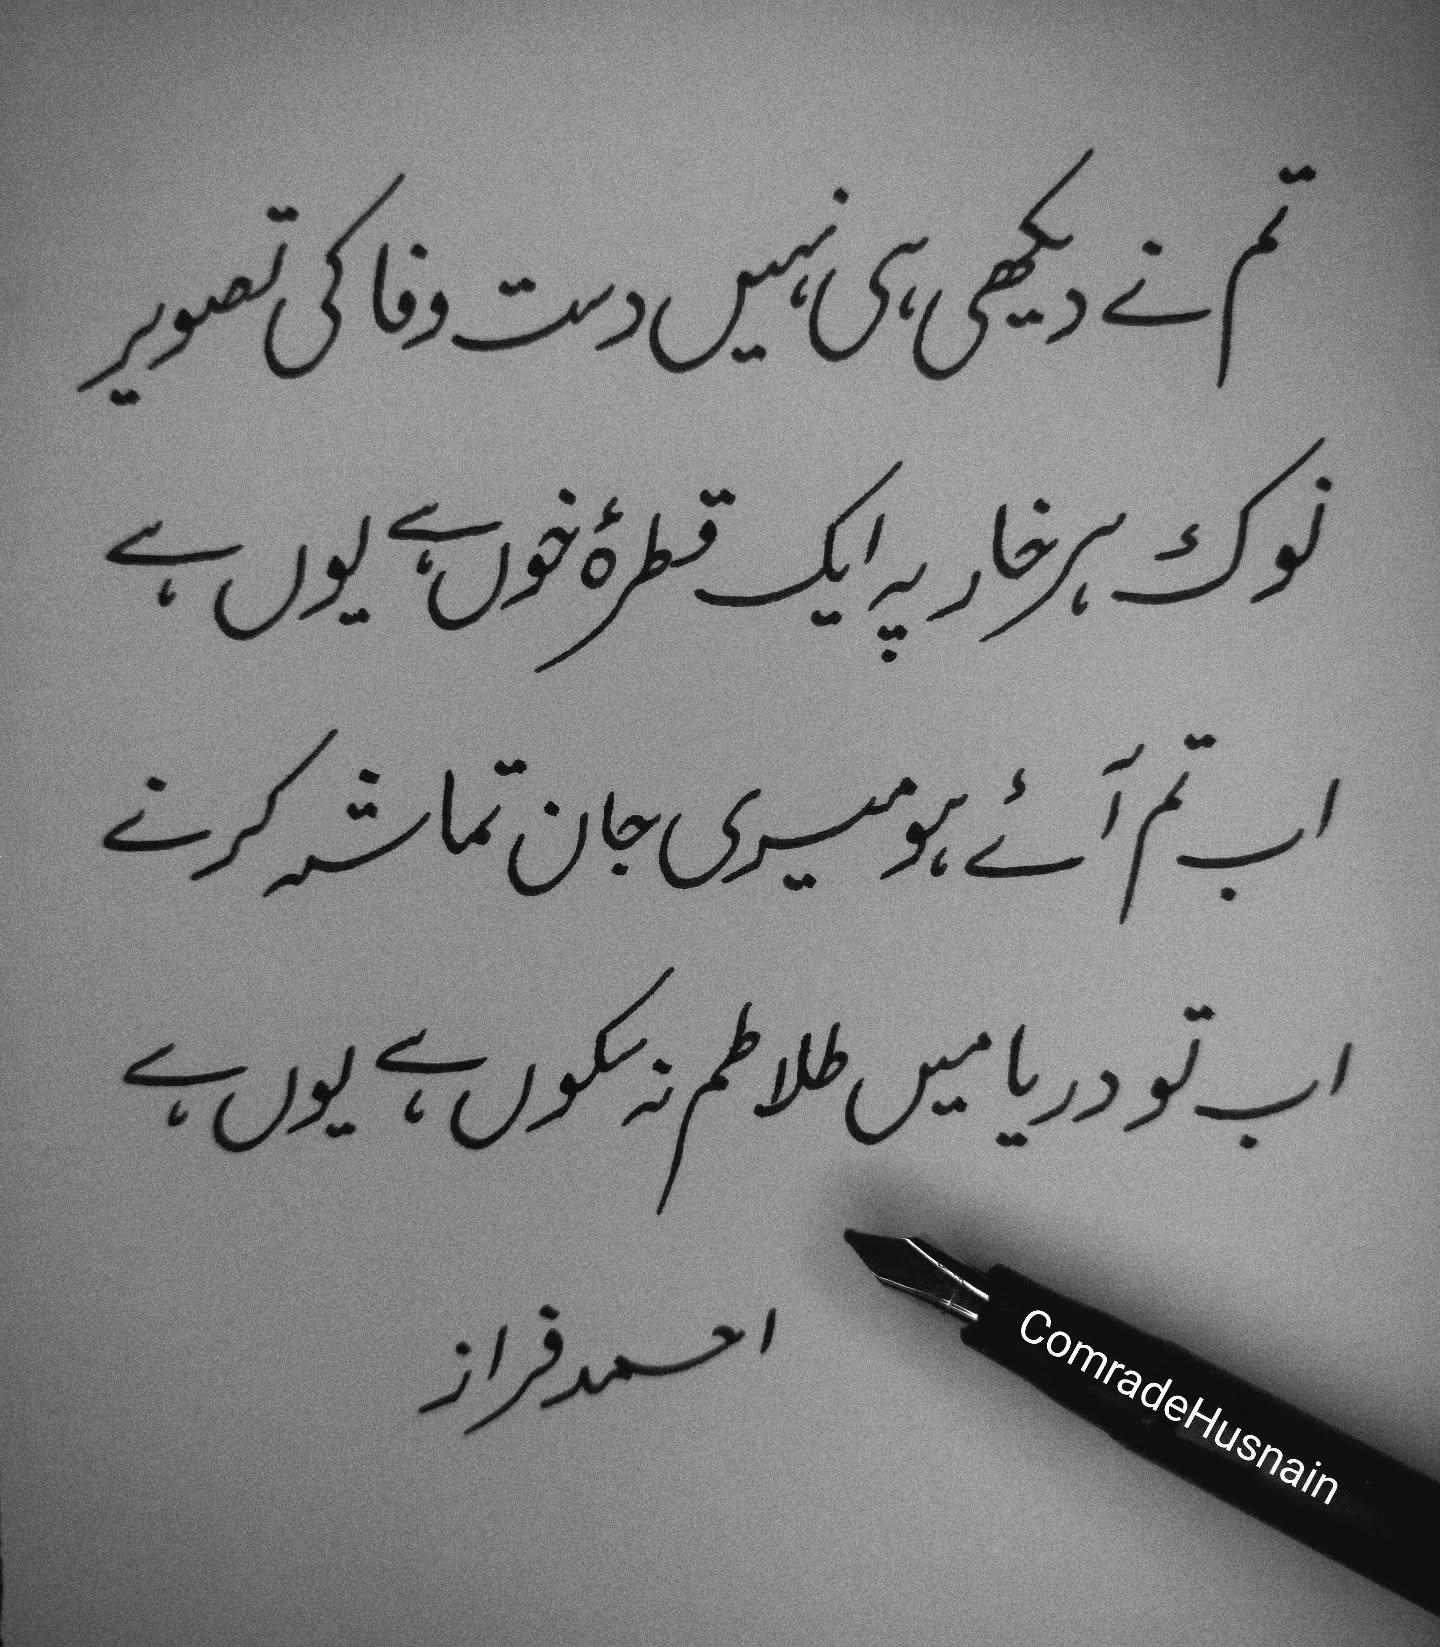 تم نے دیکھی ہی نہیں دست وفا کی تصویر
نوکِ ہر خار پہ ایک قطرۂ خوں ہے یوں ہے
اب تم آئے ہو میری جان تماشہ کرنے
اب تو دریا میں طلاطم نہ سکوں ہے یوں ہے
احمد فراز
ComradeHusnain